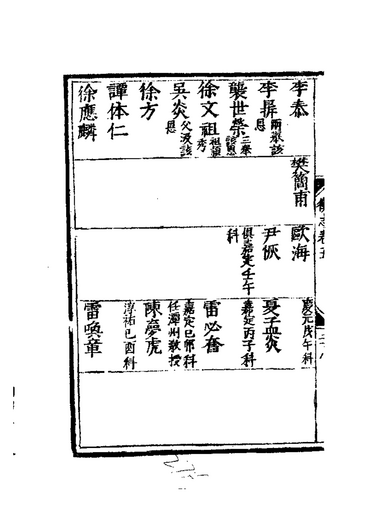 李㤗
李㞳 兩舉該恩
龔世榮 三舉
徐文祖
吳炎 父汲該恩
徐方
譚体仁
徐應麟
樊簡甫
歐海
尹恢
俱嘉定壬午科
慶元戊午科
夏子㷔
嘉定丙子科
雷必奮
嘉定己卯科
任潭州敎授
陳夢虎
淳祐己酉科
雷喚章